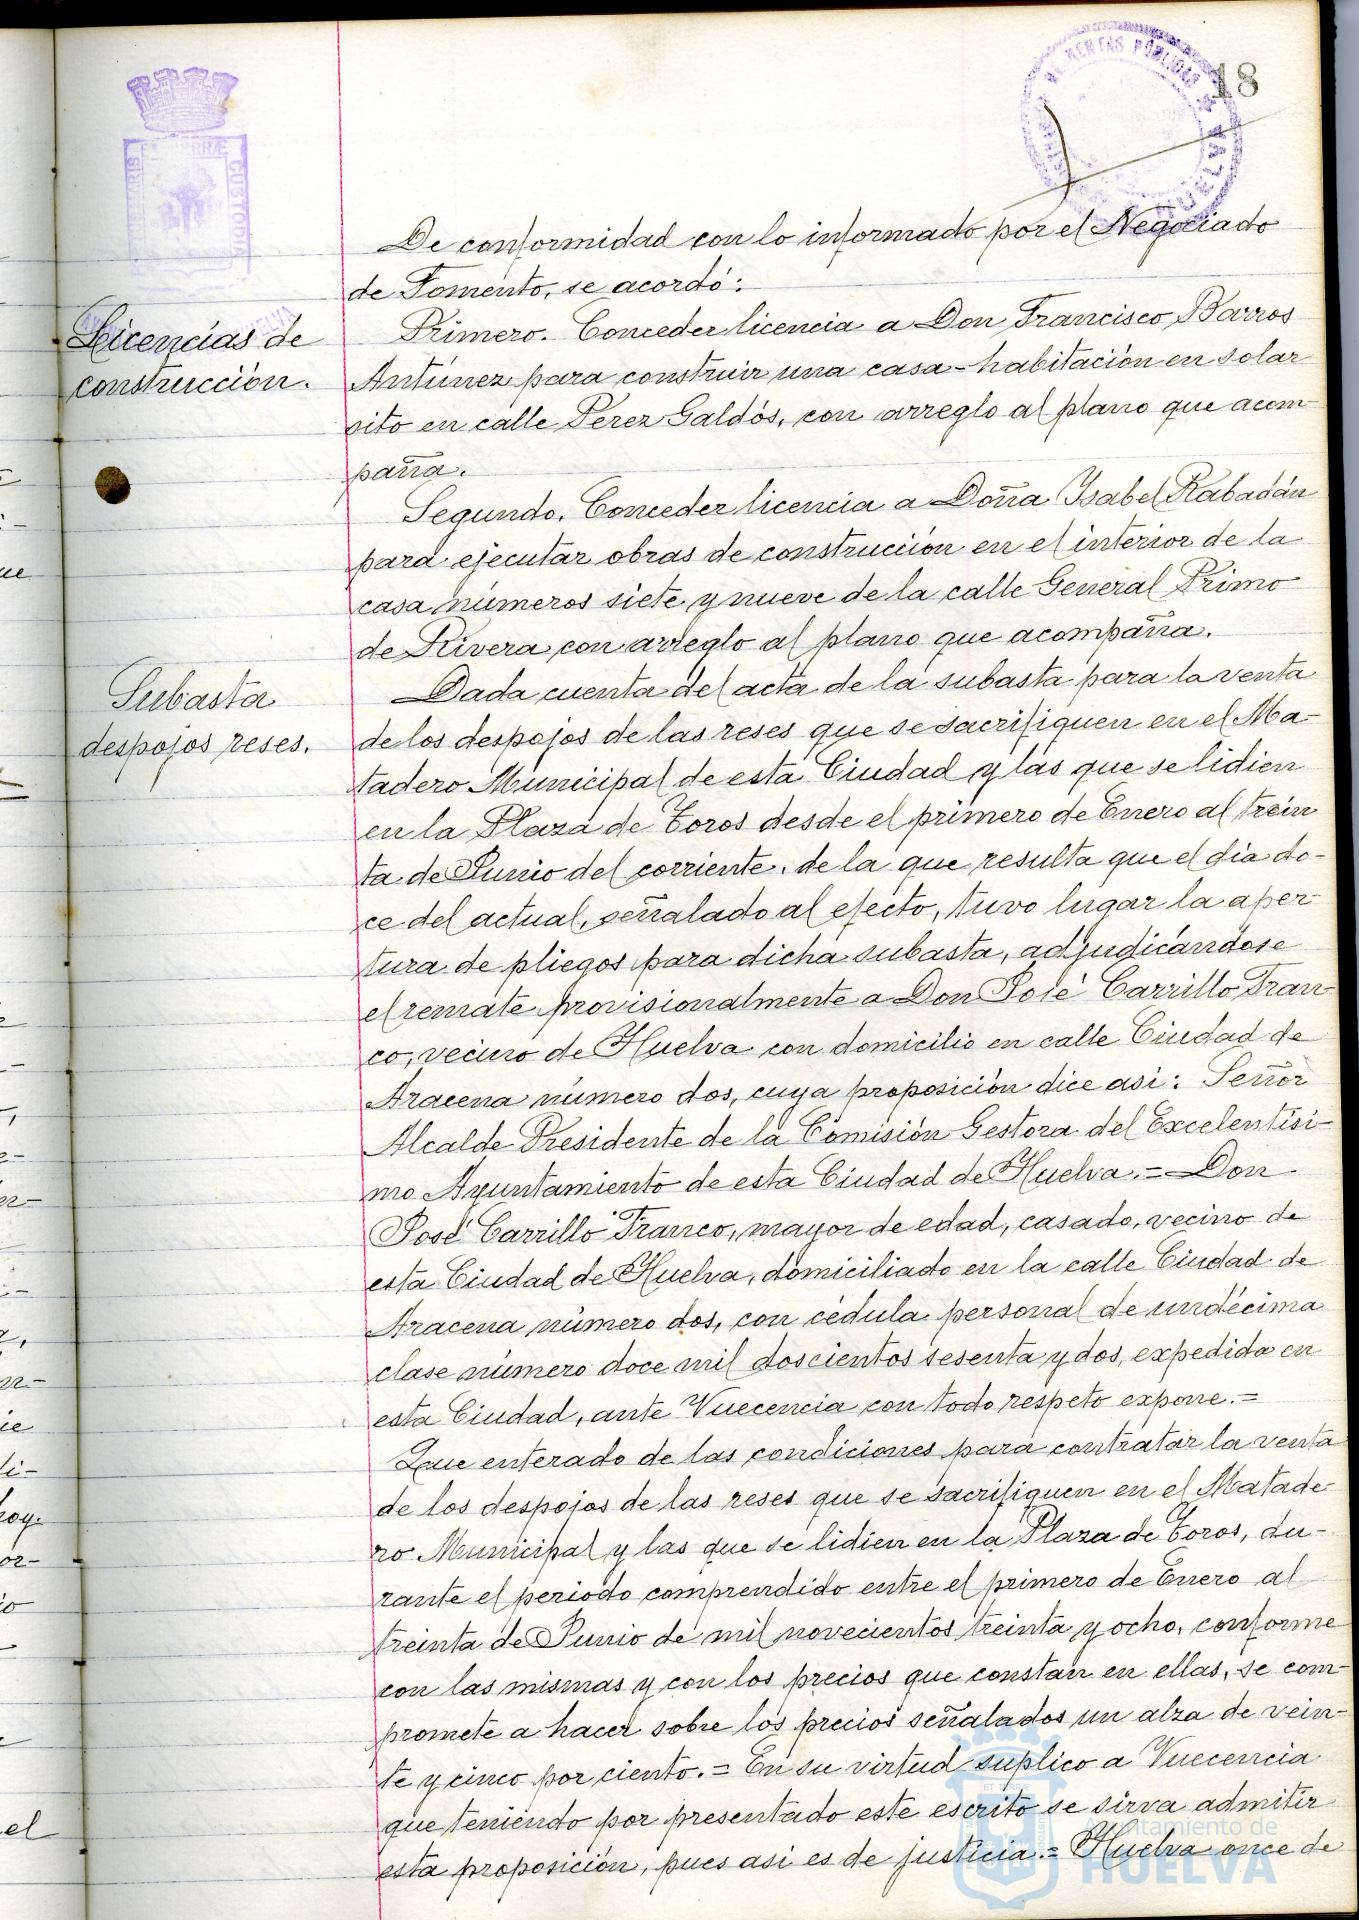 18
DE RENTAS PÚBLICAS
HUELVA
CUSTODIA
De conformidad con lo informado por el Negociado
de Fomento, se acordó:
Licencias de
construcción.
Primero. Conceder licencia a Don Francisco Barros
Antúnez para construir una casa-habitación en solar
sito en calle Perez Galdós, con arreglo al plano que acom-
paña.
Segundo. Conceder licencia a Doña Isabel Rabadán
para ejecutar obras de construcción en el interior de la
casa números siete y nueve de la calle General Primo
de Rivera con arreglo al plano que acompaña.
Subasta
despojos reses.
Dada cuenta del acta de la subasta para la venta
de los despojos de las reses que se sacrifiquen en el Ma-
tadero Municipal de esta Ciudad y las que se lidien
en la Plaza de Toros desde el primero de Enero al trein
ta de Junio del corriente, de la que resulta que el dia do-
ce del actual, señalado al efecto, tuvo lugar la aper-
tura de pliegos para dicha subasta, adjudicándose
el remate provisionalmente a Don José Carrillo Fran-
co, vecino de Huelva con domicilio en calle Ciudad de
Aracena número dos, cuya proposición dice asi: Señor
Alcalde Presidente de la Comisión Gestora del Excelentísi-
mo Ayuntamiento de esta Ciudad de Huelva.= Don
José Carrillo Franco, mayor de edad, casado, vecino de
esta Ciudad de Huelva, domiciliado en la calle Ciudad de
Aracena número dos, con cédula personal de undécima
clase número doce mil doscientos sesenta y dos, expedida en
esta Ciudad, ante Vuecencia con todo respeto expone.=
Que enterado de las condiciones para contratar la venta
de los despojos de las reses que se sacrifiquen en el Matade-
ro Municipal y las que se lidien en la Plaza de Toros, du-
rante el periodo comprendido entre el primero de Enero al
treinta de Junio de mil novecientos treinta y ocho, conforme
con las mismas y con los precios que constan en ellas, se com-
promete a hacer sobre los precios señalados un alza de vein-
te y cinco por ciento.= En su virtud suplico a Vuecencia
que teniendo por presentado este escrito se sirva admitir
esta proposición, pues asi es de justicia.= Huelva once de
Ayuntamiento de
HUELVA